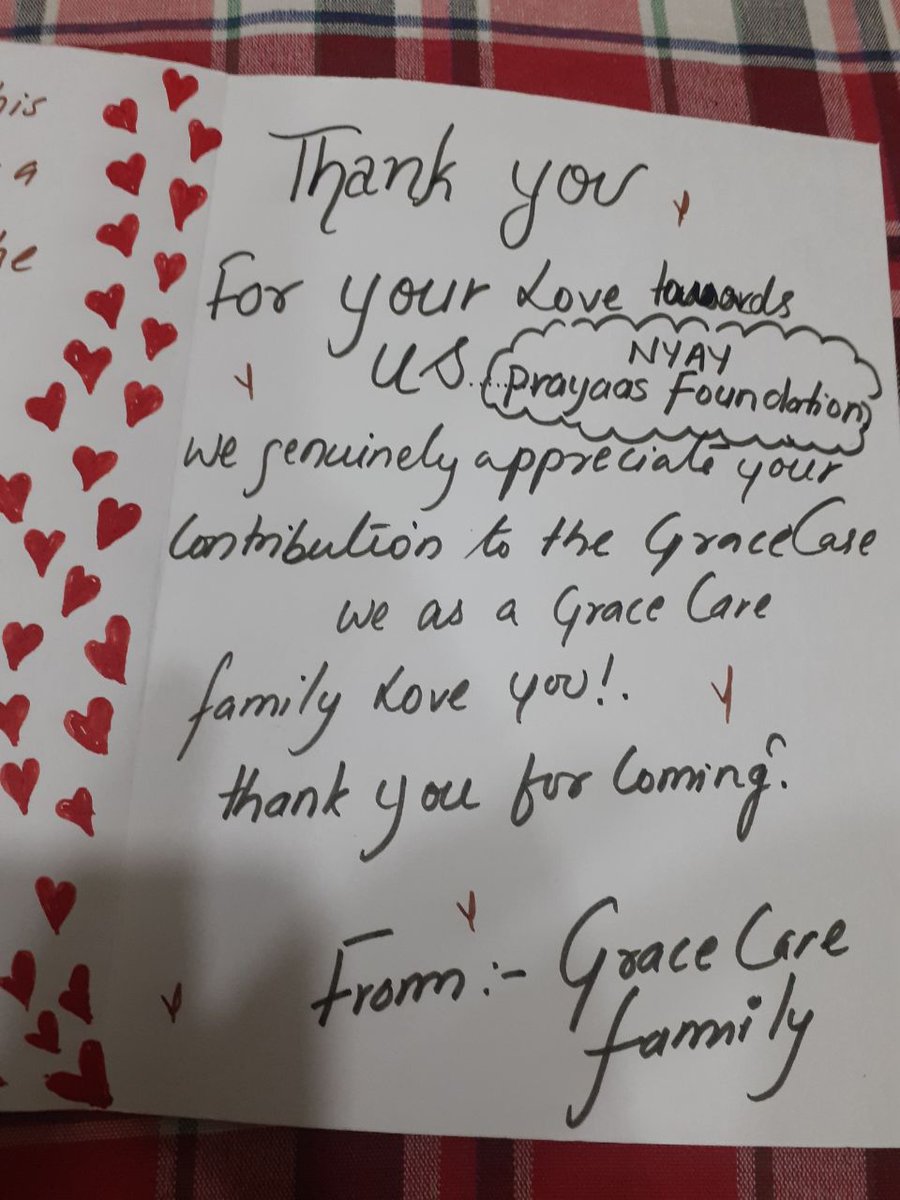 his
a
he
Thank you
For your Love towards
us.....
NYAY
Prayaas Foundation
we genuinely appreciate your
Contribution to the Grace Care
we as a Grace Care
family Love you!.
thank you for Coming.
From:- Grace Care
family